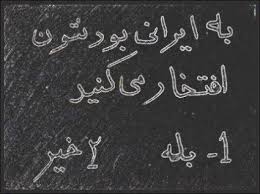 به ایرانی بورنتون
افتخار می کنید
1- بله    ۲ خیر